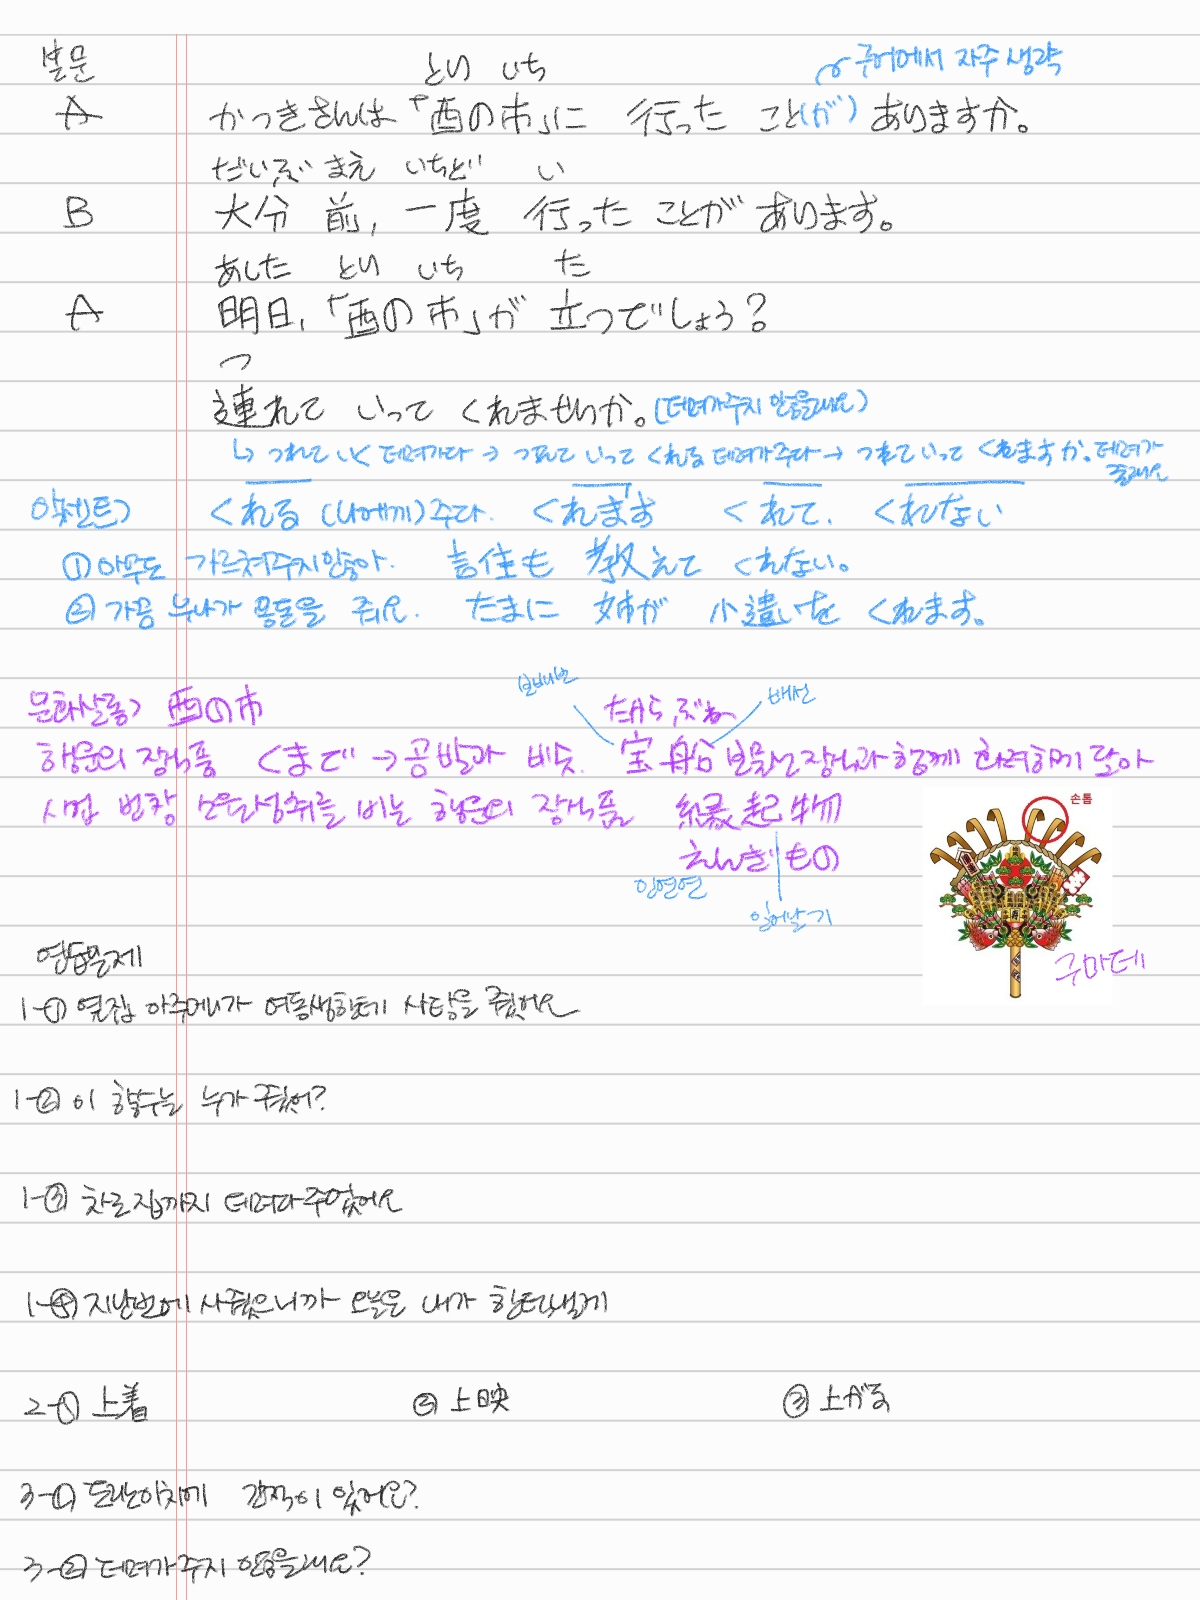 본문
とり いち
구어에서 자주 생략
A かつきさんは「酉の市」に 行った こと(が) ありますか。
だいぶ まえ いちど い
B 大分 前, 一度 行った ことが あります。
あした とり いち た
A 明日,「酉の市」が 立つでしょう?
つ
連れて いって くれませんか。(데려가주지 않을래요)
↳ つれていく 데려가다 → つれて いって くれる 데려가주다 → つれていって くれますか. 데려가 줄래요
악센트> くれる (나에게) 주다. くれます くれて. くれない
① 아무도 가르쳐주지않아. 誰も 教えて くれない。
② 가끔 누나가 용돈을 줘요. たまに 姉が 小遣いを くれます。
문화살롱> 酉の市
보배보 たからぶね 배선
행운의 장식품 くまで → 공발과 비슷. 宝船 보물선장식과 함께 화려하게 달아
사업 번창 소원성취를 비는 행운의 장식품 縁起物
えんぎもの
인연연 일어날기
손톱
구마데
연습문제
1-① 옆집 아주머니가 여동생한테 사탕을 줬어요
1-② 이 향수는 누가 줬어?
1-③ 차로 집까지 데려다주었어요
1-④ 지난번에 사줬으니까 오늘은 내가 한턱낼게
2-① 上着 ② 上映 ③ 上がる
3-① 도리노이치에 간적이 있어요?
3-② 데려가주지 않을래요?